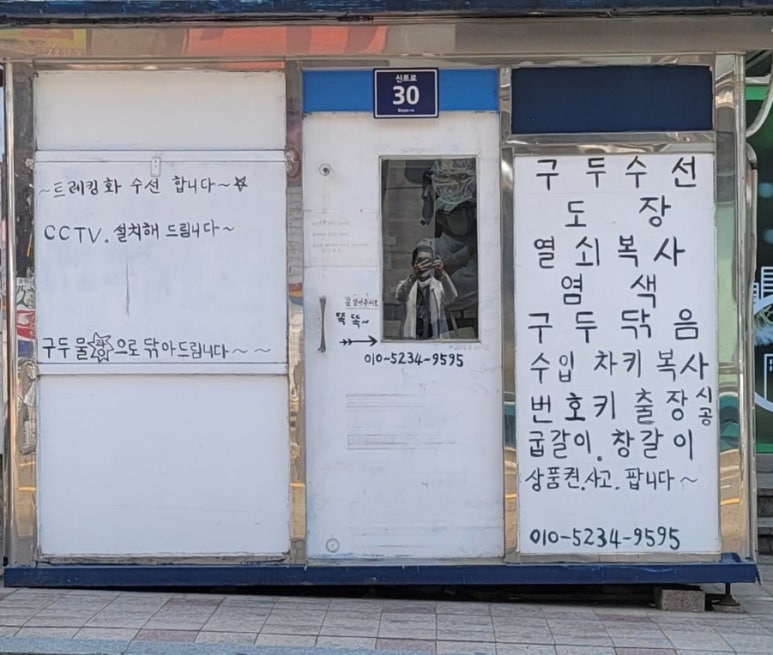 ~트레킹화 수선 합니다~
CCTV. 설치해 드립니다~
구두 물광으로 닦아드립니다~~
신포로
30
똑 똑~
010-5234-9595
구두수선
도장
열쇠복사
염색
구두닦음
수입 차키복사
번호키 출장시공
굽갈이. 창갈이
상품권.사고.팝니다~
010-5234-9595